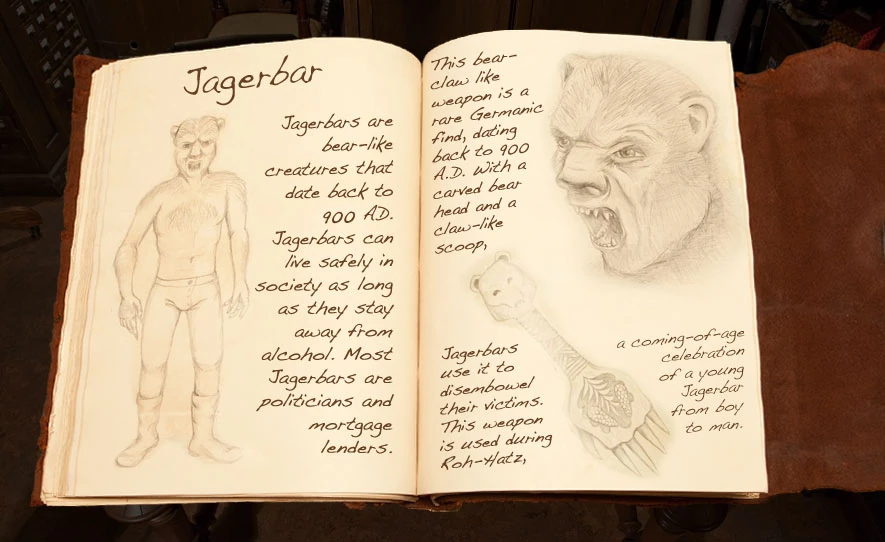 Jagerbar
Jagerbars are
bear-like
creatures that
date back to
900 AD.
Jagerbars can
live safely in
society as long
as they stay
away from
alcohol. Most
Jagerbars are
politicians and
mortgage
lenders.
This bear-
claw like
weapon is a
rare Germanic
find, dating
back to 900
A.D. With a
carved bear
head and a
claw-like
scoop,
Jagerbars
use it to
disembowel
their victims.
This weapon
is used during
Roh-Hatz,
a coming-of-age
celebration
of a young
Jagerbar
from boy
to man.